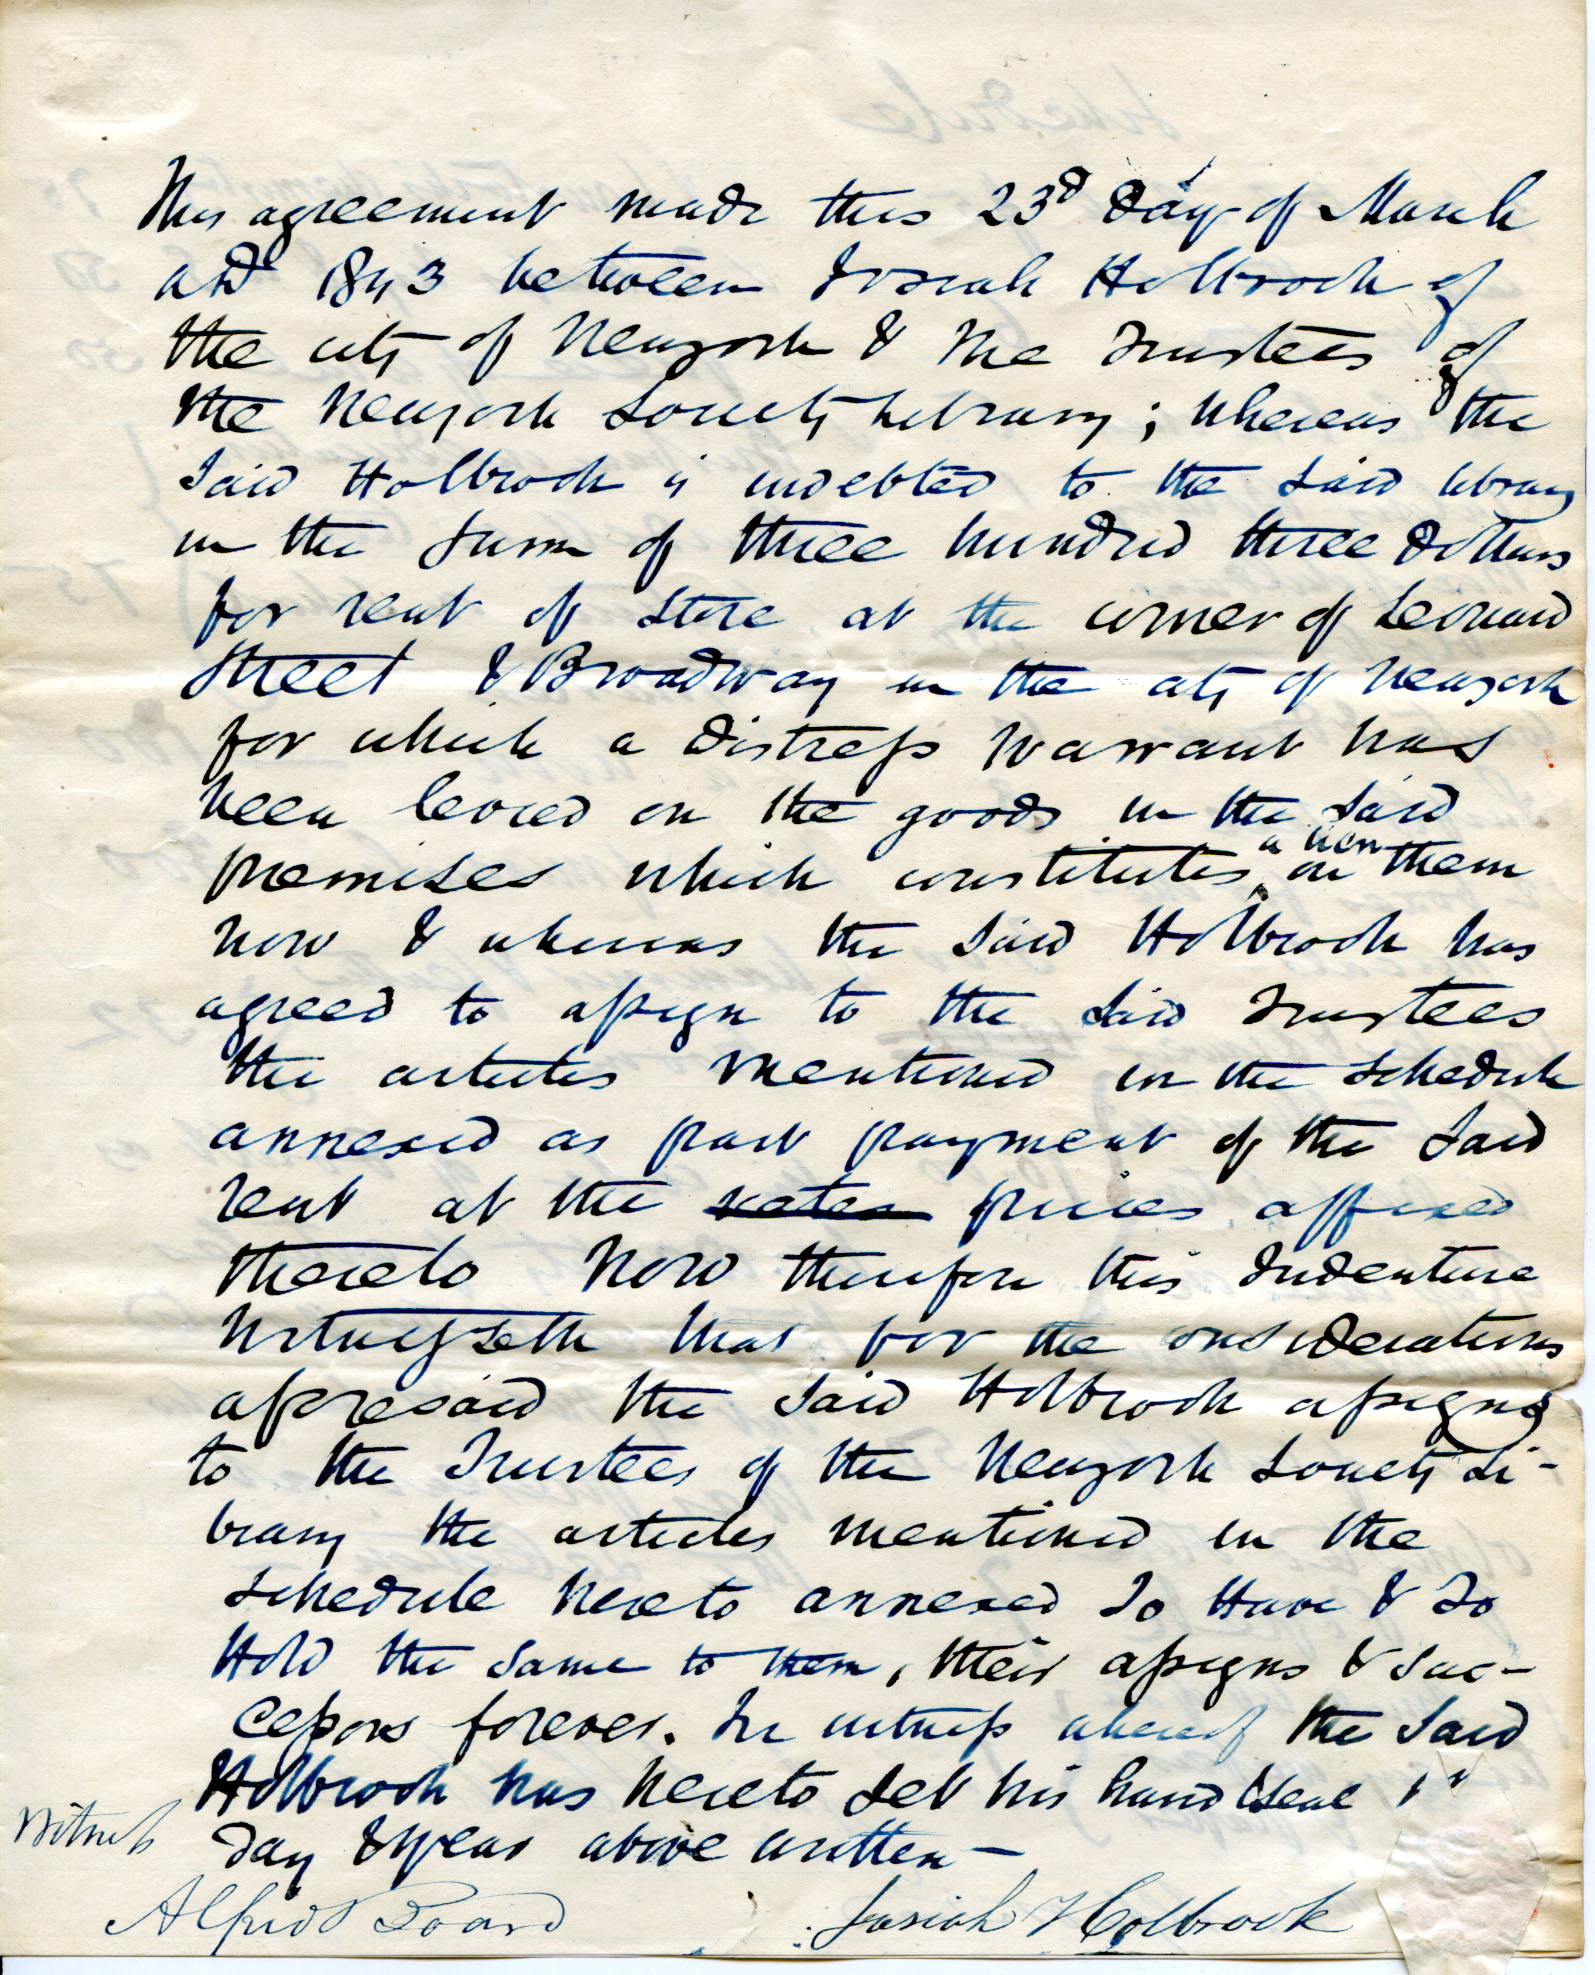 Schedule
This agreement made this 23d Day of March
AD 1843 between Josiah Holbrook of
the city of Newyork & the Trustees of
the Newyork Society Library; Whereas the
Said Holbrook is indebted to the Said library
in the Sum of three hundred three Dollars
for rent of Store at the corner of Leonard
Street & Broadway in the city of Newyork
for which a Distress Warrant has
been levied on the goods in the Said
premises which constitutes a lien on them
Now & whereas the Said Holbrook has
agreed to assign to the Said Trustees
the articles mentioned in the Schedule
annexed as part payment of the Said
rent at the rates prices affixed
thereto Now therefore this Indenture
Witnesseth that for the considerations
aforesaid the Said Holbrook assigns
to the Trustees of the Newyork Society Li-
brary the articles mentioned in the
Schedule hereto annexed To Have & To
Hold the Same to them, their assigns & Suc-
cessors forever. In witness whereof the Said
Holbrook has hereto Set his hand & Seal
Day & year above written —
Witness
Alfred Josiah Holbrook